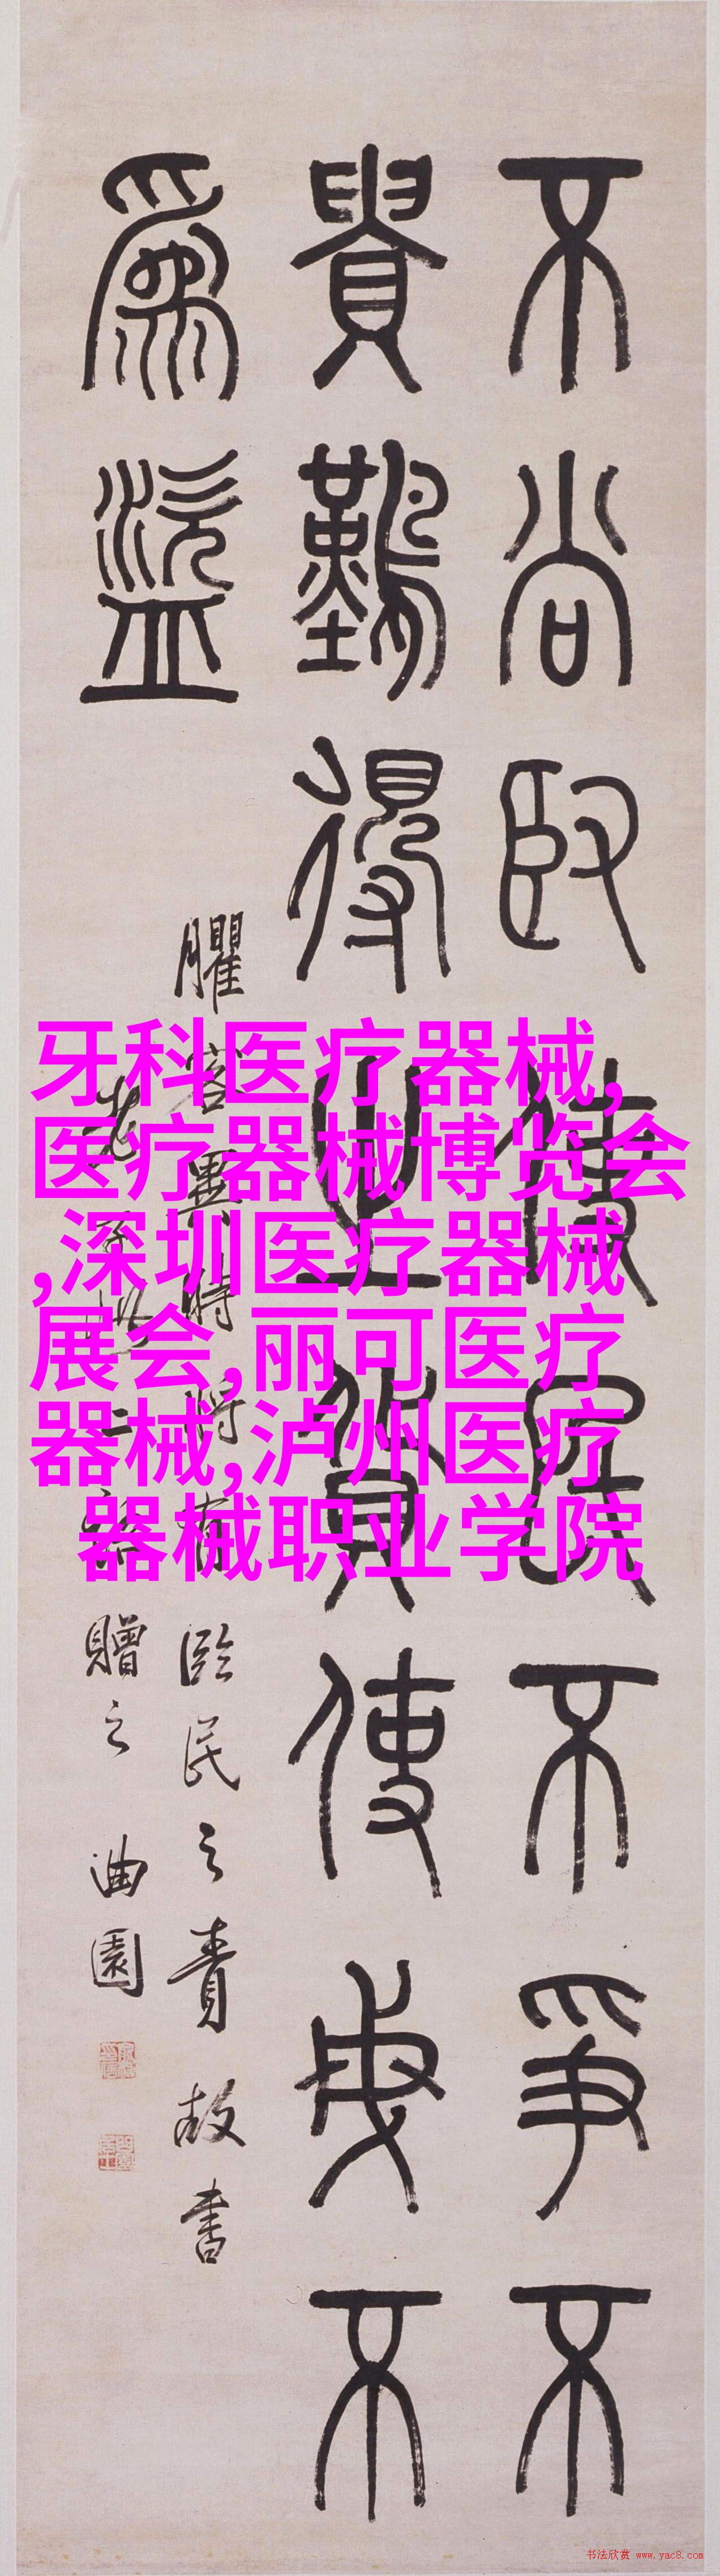 不尚臤使民不爭不
貴難得之貨使民不
為盜
臞客異時將有臨民之責故書
老子此二語贈之 曲園
牙科医疗器械,
医疗器械博览会
,深圳医疗器械
展会,丽可医疗
器械,泸州医疗
器械职业学院
书法欣赏 www.yac8.com